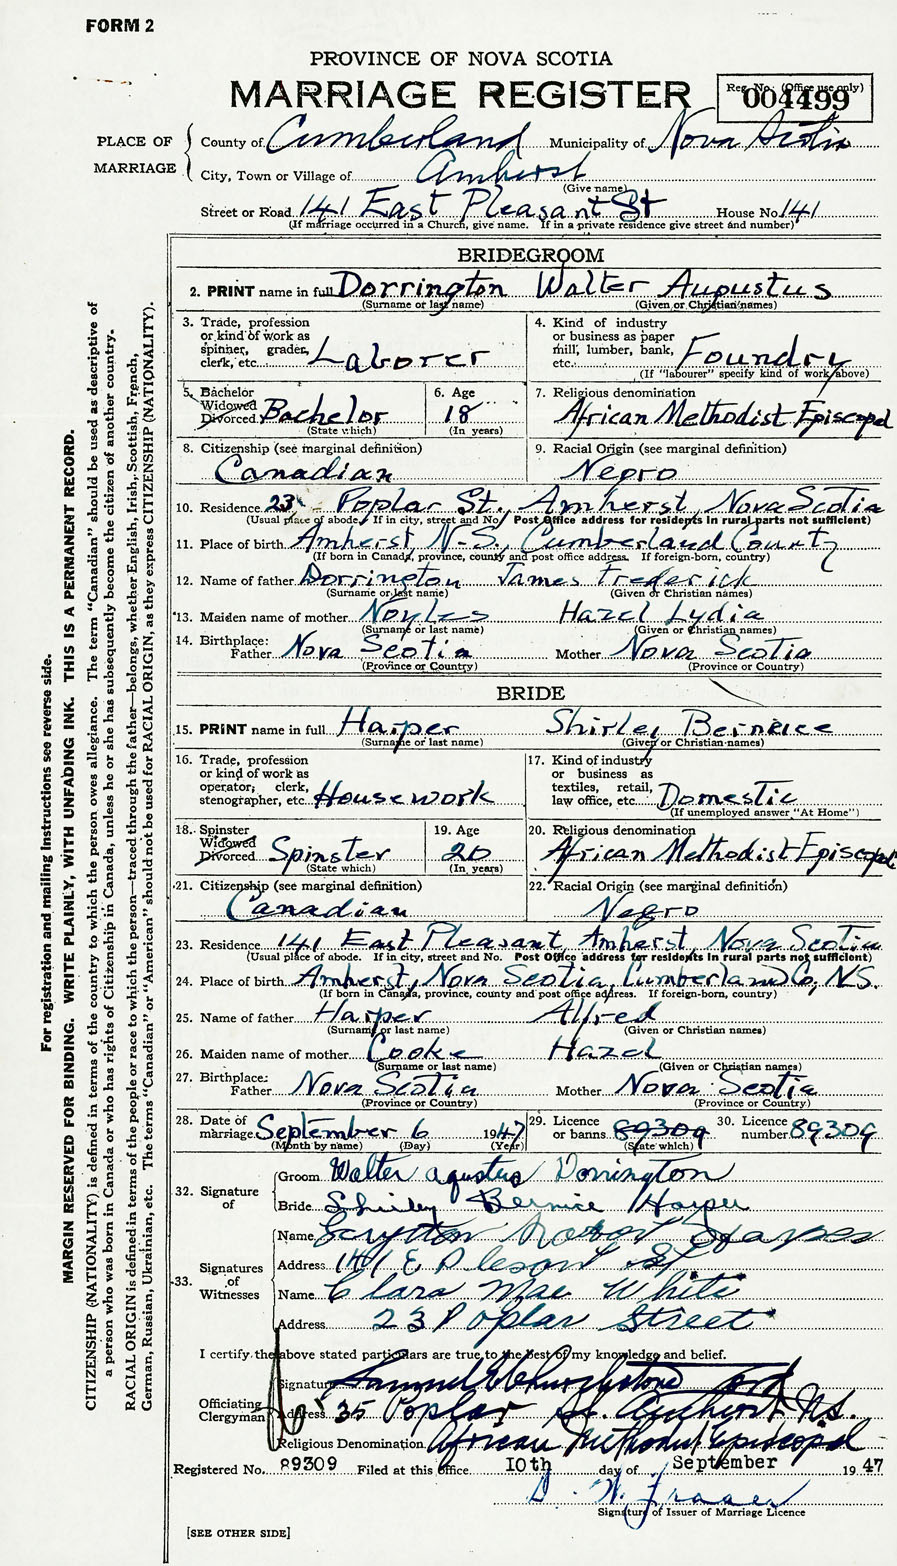 FORM 2
PROVINCE OF NOVA SCOTIA
MARRIAGE REGISTER
Reg. No. (Office use only)
004499
PLACE OF MARRIAGE
County of Cumberland Municipality of Nova Scotia
City, Town or Village of Amherst
(Give name)
Street or Road 141 East Pleasant St House No. 141
(If marriage occurred in a Church, give name. If in a private residence give street and number)
BRIDEGROOM
2. PRINT name in full Dorrington Walter Augustus
(Surname or last name) (Given or Christian names)
3. Trade, profession or kind of work as spinner, grader, clerk, etc. Laborer
4. Kind of industry or business as paper mill, lumber, bank, etc. Foundry
(If "labourer" specify kind of work above)
5. Bachelor Widowed Divorced Bachelor
(State which)
6. Age 18
(In years)
7. Religious denomination
African Methodist Episcopal
8. Citizenship (see marginal definition)
Canadian
9. Racial Origin (see marginal definition)
Negro
10. Residence 23 Poplar St., Amherst, Nova Scotia
(Usual place of abode. If in city, street and No. Post Office address for residents in rural parts not sufficient)
11. Place of birth Amherst N.S., Cumberland County
(If born in Canada, province, county and post office address. If foreign-born, country)
12. Name of father Dorrington James Frederick
(Surname or last name) (Given or Christian names)
13. Maiden name of mother Noyles Hazel Lydia
(Surname or last name) (Given or Christian names)
14. Birthplace: Father Nova Scotia Mother Nova Scotia
(Province or Country) (Province or Country)
BRIDE
15. PRINT name in full Harper Shirley Berniece
(Surname or last name) (Given or Christian names)
16. Trade, profession or kind of work as operator, clerk, stenographer, etc. Housework
17. Kind of industry or business as textiles, retail, law office, etc. Domestic
(If unemployed answer "At Home")
18. Spinster Widowed Divorced Spinster
(State which)
19. Age 20
(In years)
20. Religious denomination
African Methodist Episcopal
21. Citizenship (see marginal definition)
Canadian
22. Racial Origin (see marginal definition)
Negro
23. Residence 141 East Pleasant, Amherst, Nova Scotia
(Usual place of abode. If in city, street and No. Post Office address for residents in rural parts not sufficient)
24. Place of birth Amherst, Nova Scotia, Cumberland Co, N.S.
(If born in Canada, province, county and post office address. If foreign-born, country)
25. Name of father Harper Alfred
(Surname or last name) (Given or Christian names)
26. Maiden name of mother Cooke Hazel
(Surname or last name) (Given or Christian names)
27. Birthplace: Father Nova Scotia Mother Nova Scotia
(Province or Country) (Province or Country)
28. Date of marriage September 6 1947
(Month by name) (Day) (Year)
29. Licence or banns 89309
(State which)
30. Licence number 89309
32. Signature of
Groom Walter Agustus Dorrington
Bride Shirley Bernice Harper
33. Signatures of Witnesses
Name
Address 141 E Plesant St
Name Clara Mae White
Address 23 Poplar Street
I certify the above stated particulars are true to the best of my knowledge and belief.
Officiating Clergyman
Signature Samuel
Address 35 Poplar St. Amherst N.S.
Religious Denomination African Methodist Episcopal
Registered No. 89309 Filed at this office 10th day of September 1947
D. W. Fraser
Signature of Issuer of Marriage Licence
[SEE OTHER SIDE]
For registration and mailing instructions see reverse side.
MARGIN RESERVED FOR BINDING. WRITE PLAINLY, WITH UNFADING INK. THIS IS A PERMANENT RECORD.
CITIZENSHIP (NATIONALITY) is defined in terms of the country to which the person owes allegiance. The term "Canadian" should be used as descriptive of
a person who was born in Canada or who has rights of Citizenship in Canada, unless he or she has subsequently become the citizen of another country.
RACIAL ORIGIN is defined in terms of the people or race to which the person—traced through the father—belongs, whether English, Irish, Scottish, French,
German, Russian, Ukrainian, etc. The terms "Canadian" or "American" should not be used for RACIAL ORIGIN, as they express CITIZENSHIP (NATIONALITY).